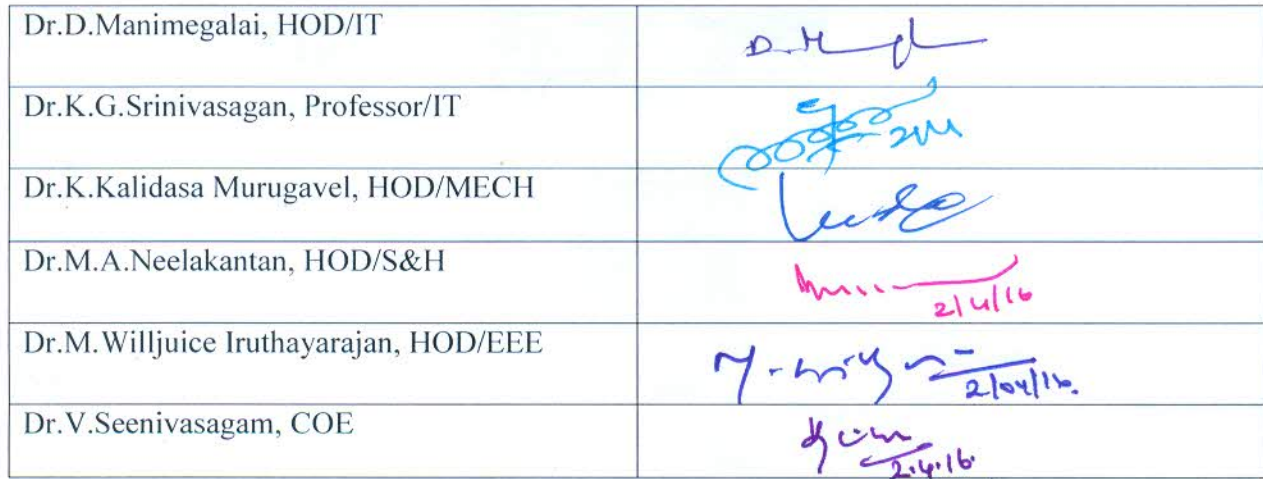 Dr.D.Manimegalai, HOD/IT
Dr.K.G.Srinivasagan, Professor/IT
2/4
Dr.K.Kalidasa Murugavel, HOD/MECH
Dr.M.A.Neelakantan, HOD/S&H
2/4/16
Dr.M.Willjuice Iruthayarajan, HOD/EEE
2/04/16.
Dr.V.Seenivasagam, COE
2.4.16.